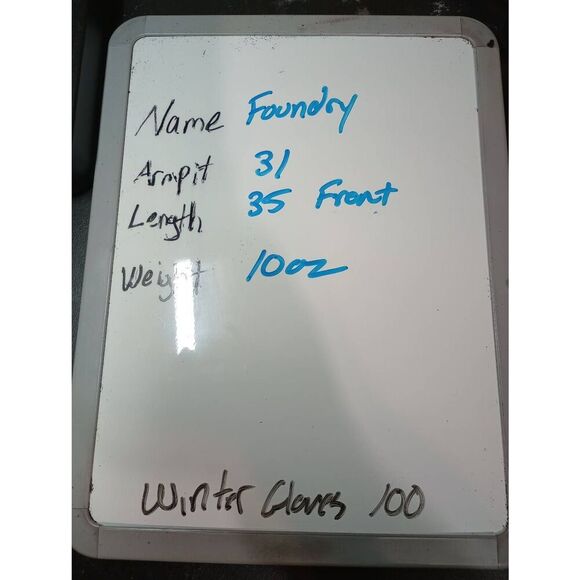 Name Foundry
Armpit 31
Length 35 Front
Weight 10oz
Winter Gloves 100